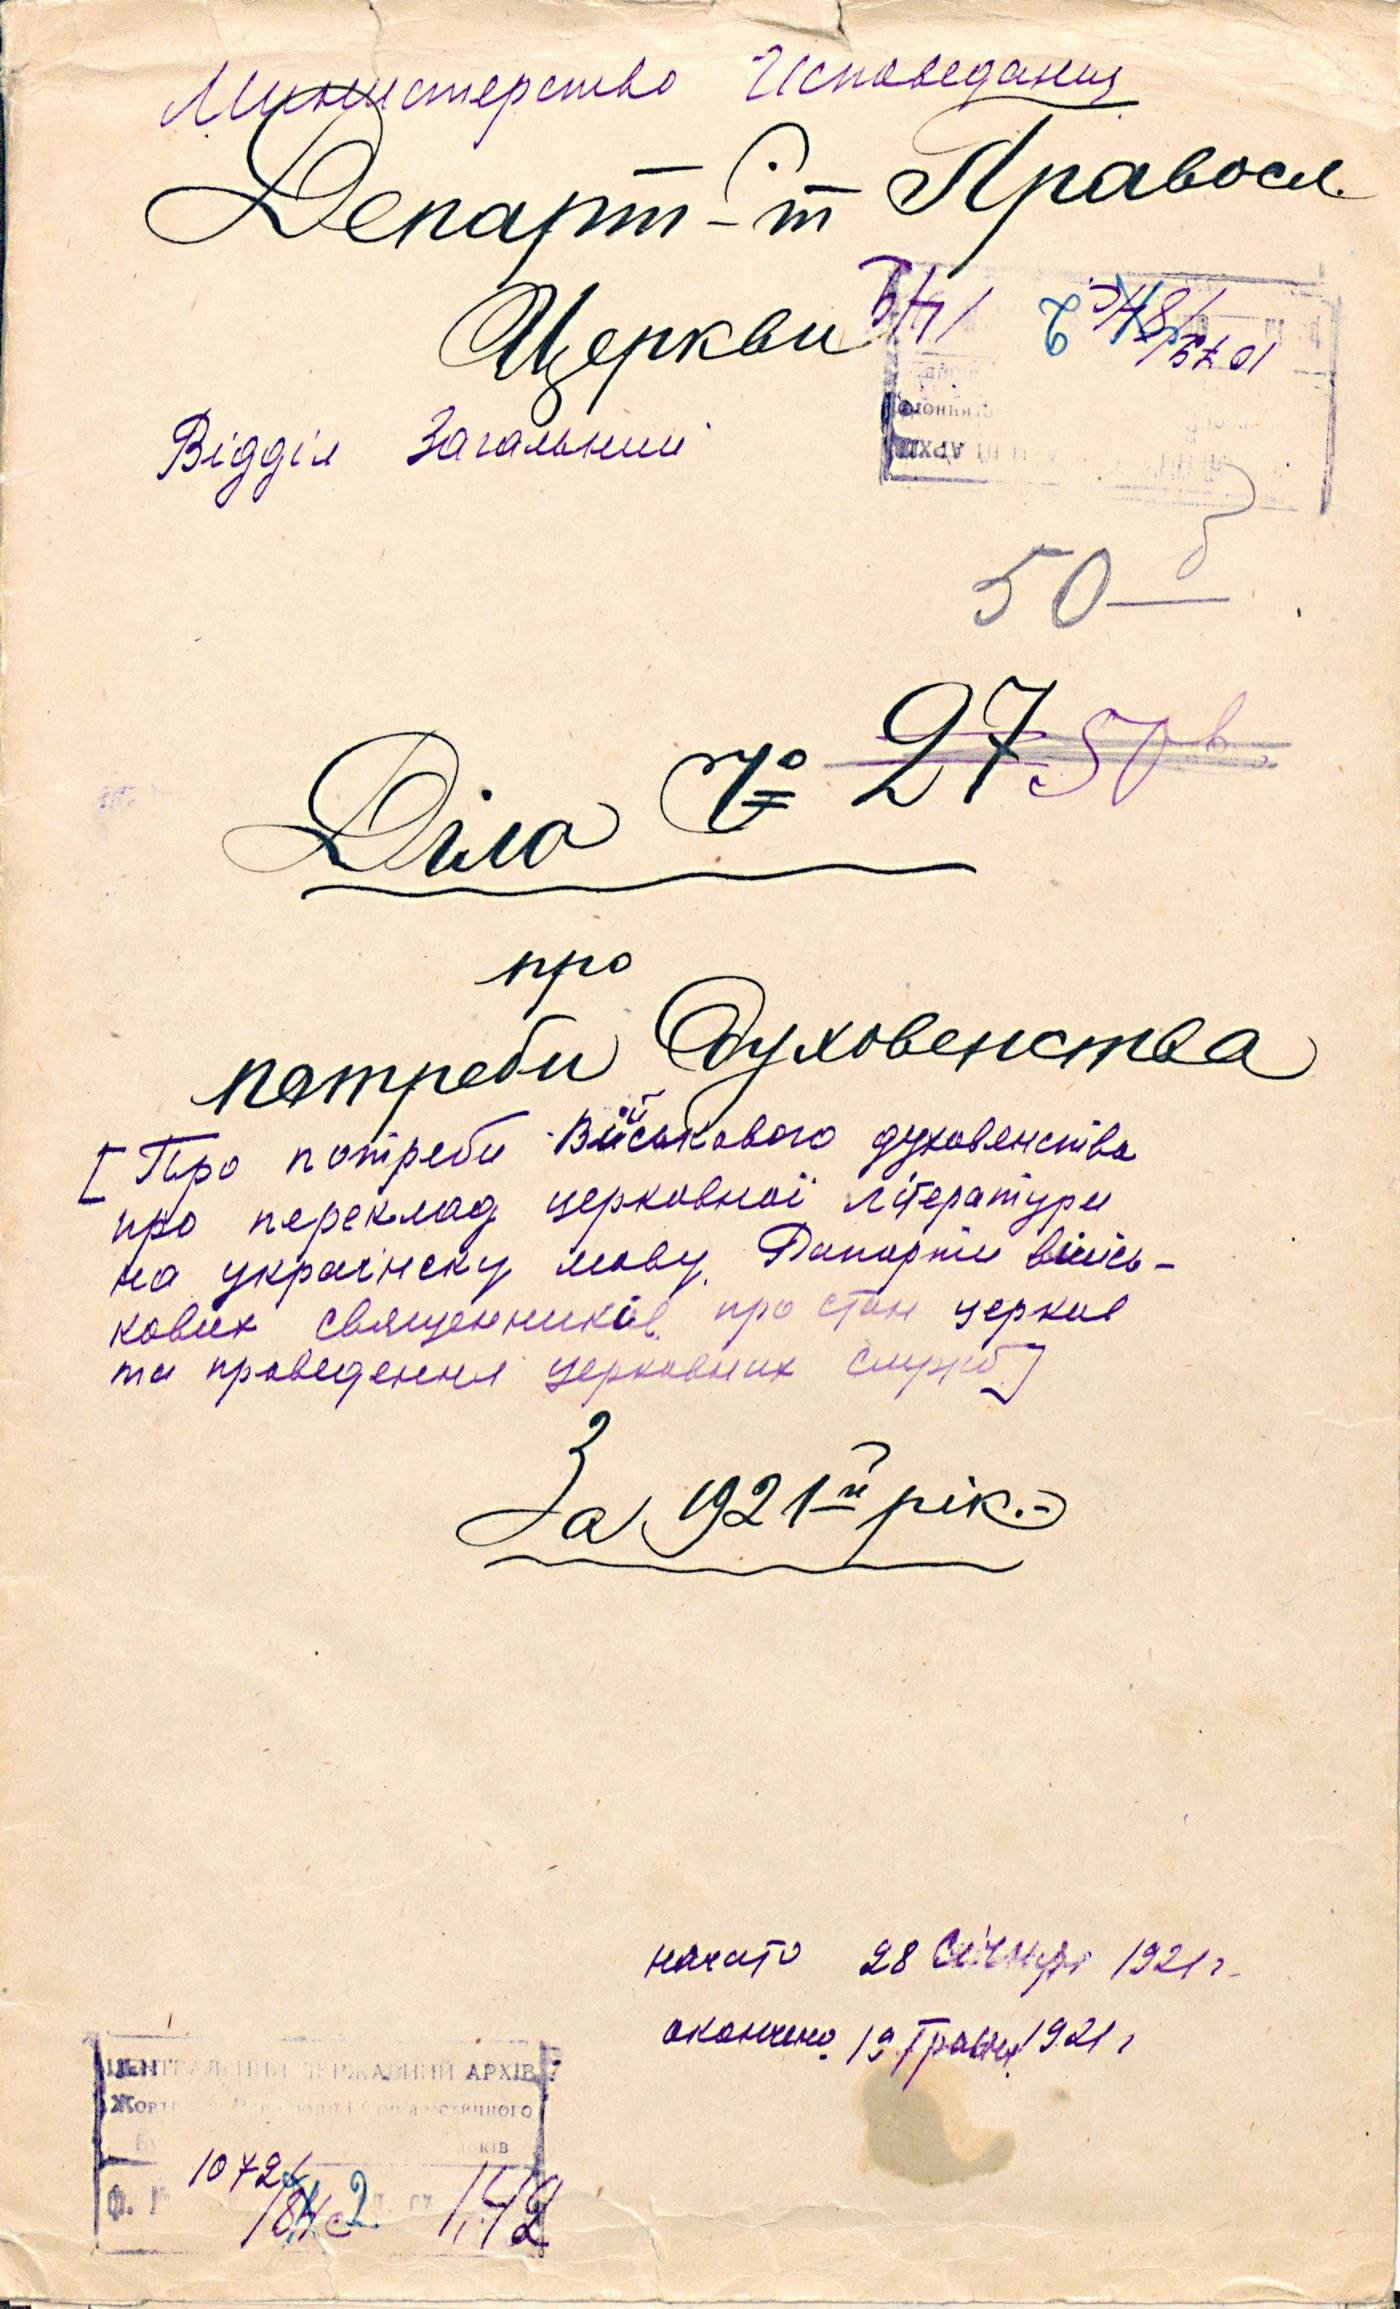 Министерство Исповедания
Департ-т Правосл.
Церкви
Відділ Загальний
50
Діло № 27 50 в
про
потреби Духовенства
[Про потреби Військового духовенства
про переклад церковної літератури
на українску мову. Рапорти війсь-
кових священників про стан церков
та проведення церковних служб]
За 1921й рік.
начато 28 Січня 1921 г.
окончено 19 Травня 1921 г
ЦЕНТРАЛЬНИЙ ДЕРЖАВНИЙ АРХІВ
Жовтневої Революції і Соціалістичного
1072
Ф. №